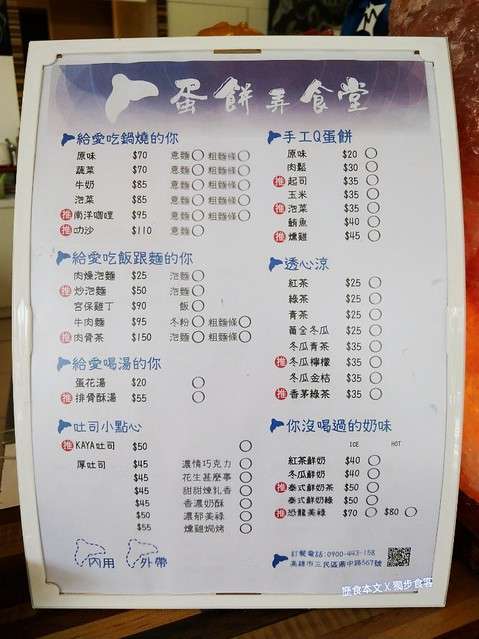 蛋餅弄食堂
給愛吃鍋燒的你
原味 $70 意麵 粗麵條
蔬菜 $70 意麵 粗麵條
牛奶 $85 意麵 粗麵條
泡菜 $85 意麵 粗麵條
推 南洋咖哩 $95 意麵 粗麵條
推 叻沙 $110 意麵
給愛吃飯跟麵的你
肉燥泡麵 $25 泡麵
推 炒泡麵 $50 泡麵
宮保雞丁 $90 飯
牛肉麵 $95 冬粉 粗麵條
推 肉骨茶 $150 泡麵 粗麵條
給愛喝湯的你
蛋花湯 $20
推 排骨酥湯 $55
吐司小點心
推 KAYA吐司 $50
厚吐司 $45 濃情巧克力
$45 花生甚麼事
$45 甜甜煉乳香
$45 香濃奶酥
$50 濃郁美祿
$55 燻雞焗烤
內用 外帶
手工Q蛋餅
原味 $20
肉鬆 $30
推 起司 $35
玉米 $35
推 泡菜 $35
鮪魚 $40
推 燻雞 $45
透心涼
紅茶 $25
綠茶 $25
青茶 $25
黃金冬瓜 $25
冬瓜青茶 $35
推 冬瓜檸檬 $35
冬瓜金桔 $35
推 香茅綠茶 $35
你沒喝過的奶味
ICE HOT
紅茶鮮奶 $40
冬瓜鮮奶 $40
推 泰式鮮奶茶 $50
泰式鮮奶綠 $50
推 恐龍美祿 $70 $80
訂餐電話:0900-443-158
高雄市三民區鼎中路567號
歷食本文 X 獨步食客